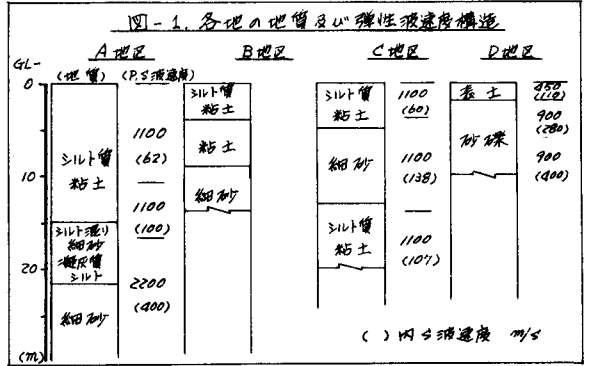 図-1. 各地の地質及び弾性波速度構造
A地区 B地区 C地区 D地区
GL-
(地質) (P.S波速度)
0
10
20
(m)
シルト質
粘土
シルト混り
細砂
凝灰質
シルト
細砂
1100
(62)
1100
(100)
2200
(400)
シルト質
粘土
粘土
細砂
シルト質
粘土
細砂
シルト質
粘土
1100
(60)
1100
(138)
1100
(107)
表土
砂礫
450
(110)
900
(280)
900
(400)
( )内S波速度 m/s